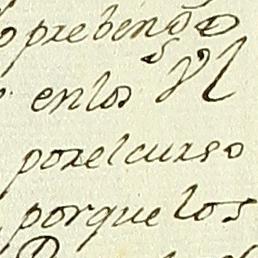 prebendo
en los
por el curso
porque los